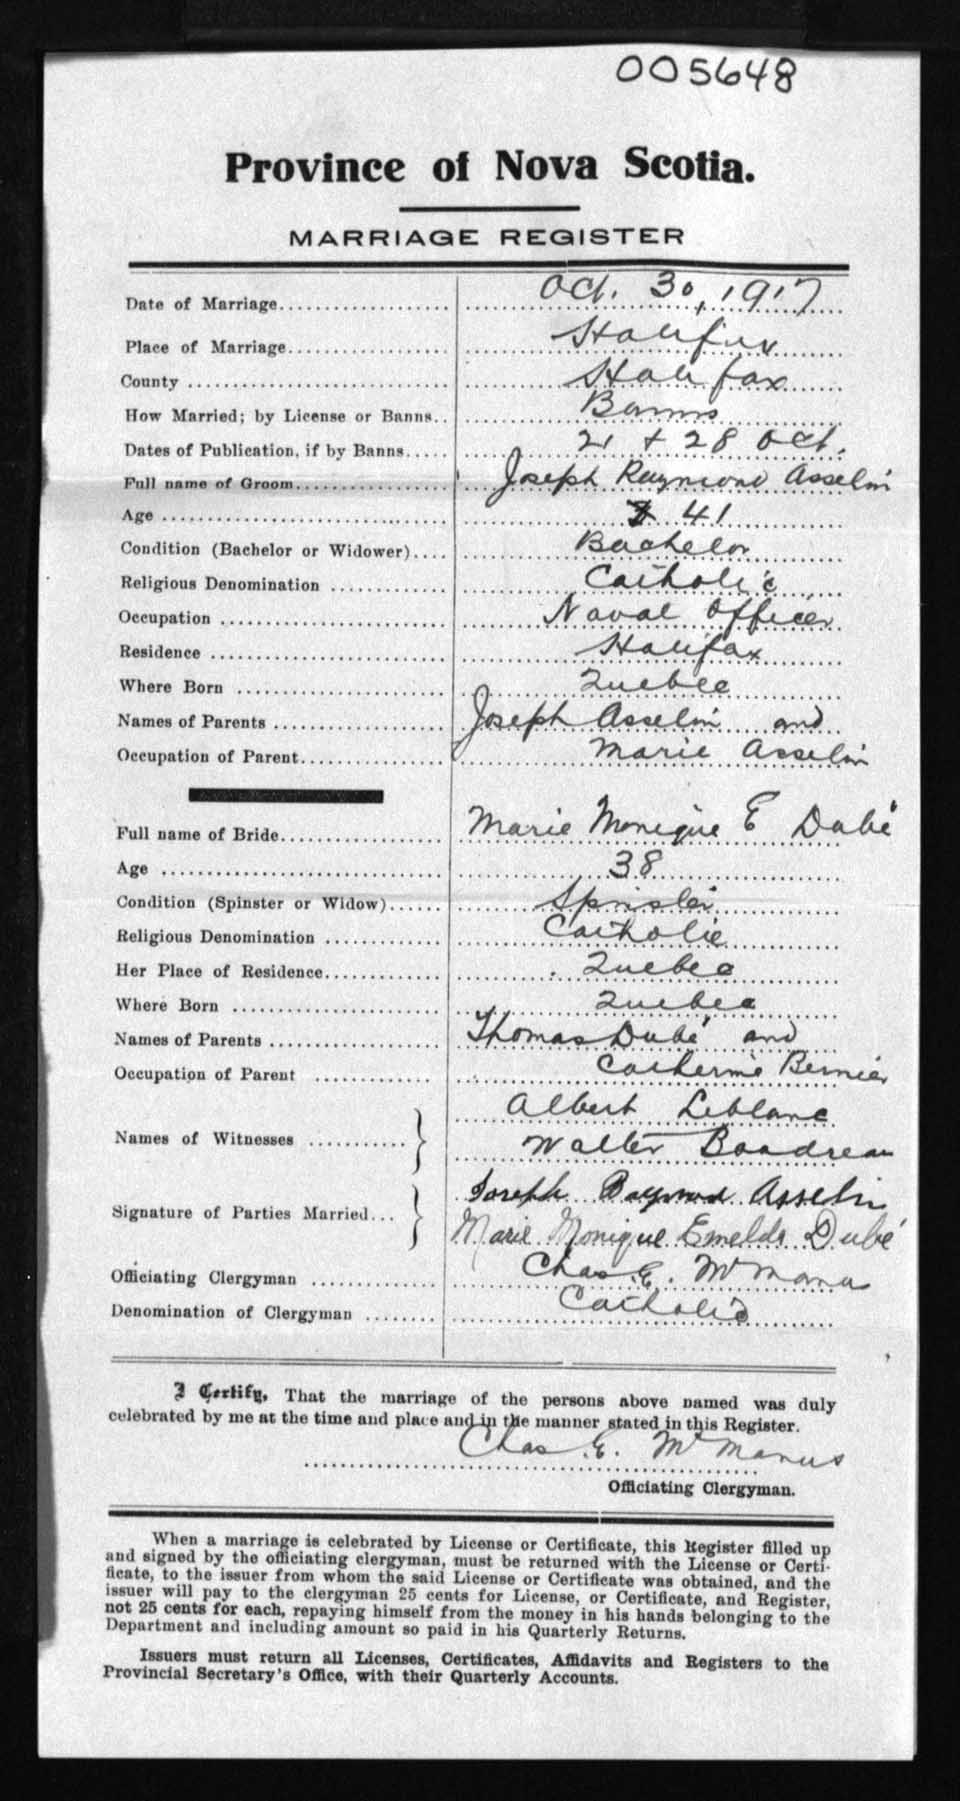 005648
Province of Nova Scotia.
MARRIAGE REGISTER
Date of Marriage Oct. 30, 1917
Place of Marriage Halifax
County Halifax
How Married; by License or Banns Banns
Dates of Publication, if by Banns 21 + 28 Oct.
Full name of Groom Joseph Raymond Asselin
Age 41
Condition (Bachelor or Widower) Bachelor
Religious Denomination Catholic
Occupation Naval Officer
Residence Halifax
Where Born Quebec
Names of Parents Joseph Asselin and
Occupation of Parent Marie Asselin
Full name of Bride Marie Monique E Dubé
Age 38
Condition (Spinster or Widow) Spinster
Religious Denomination Catholic
Her Place of Residence Quebec
Where Born Quebec
Names of Parents Thomas Dubé and
Occupation of Parent Catherine Bernier
Albert Leblanc
Names of Witnesses
Walter Boodreau
Joseph Raymond Asselin
Signature of Parties Married
Marie Monique Emelda Dubé
Officiating Clergyman Chas. E. McManus
Denomination of Clergyman Catholic
I Certify, That the marriage of the persons above named was duly
celebrated by me at the time and place and in the manner stated in this Register.
Chas. E. McManus
Officiating Clergyman.
When a marriage is celebrated by License or Certificate, this Register filled up
and signed by the officiating clergyman, must be returned with the License or Certi-
ficate, to the issuer from whom the said License or Certificate was obtained, and the
issuer will pay to the clergyman 25 cents for License, or Certificate, and Register,
not 25 cents for each, repaying himself from the money in his hands belonging to the
Department and including amount so paid in his Quarterly Returns.
Issuers must return all Licenses, Certificates, Affidavits and Registers to the
Provincial Secretary's Office, with their Quarterly Accounts.